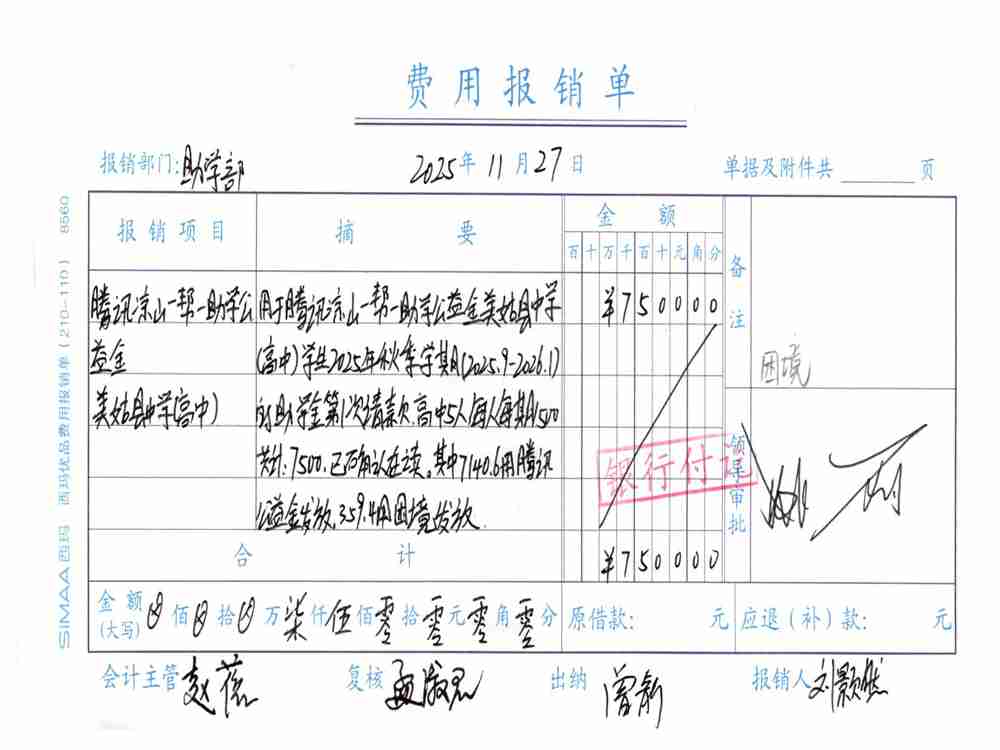 费用报销单
报销部门:助学部
2025年11月27日
单据及附件共 页
报销项目 摘要 金额
百十万千百十元角分
备注
腾讯凉山一帮一助学公 用于腾讯凉山一帮一助学公益金美姑县中学 ¥750000
益金 (高中)学生2025年秋季学期(2025.9-2026.1)
困境
美姑县中学(高中) 的助学金第1次请款,高中5人每人每期1500
共计:7500,已万确认在读。其中7140.6用腾讯
银行付讫
领导审批
公益金发放,359.4用困境发放.
合计 ¥750000
金额(大写) 佰 拾 万柒仟伍佰零拾零元零角零分 原借款: 元 应退(补)款: 元
会计主管 赵蓓 复核 孟淑君 出纳 曾新 报销人 刘颢然
SIMAA西玛 西玛优品费用报销单(210-110) 8560